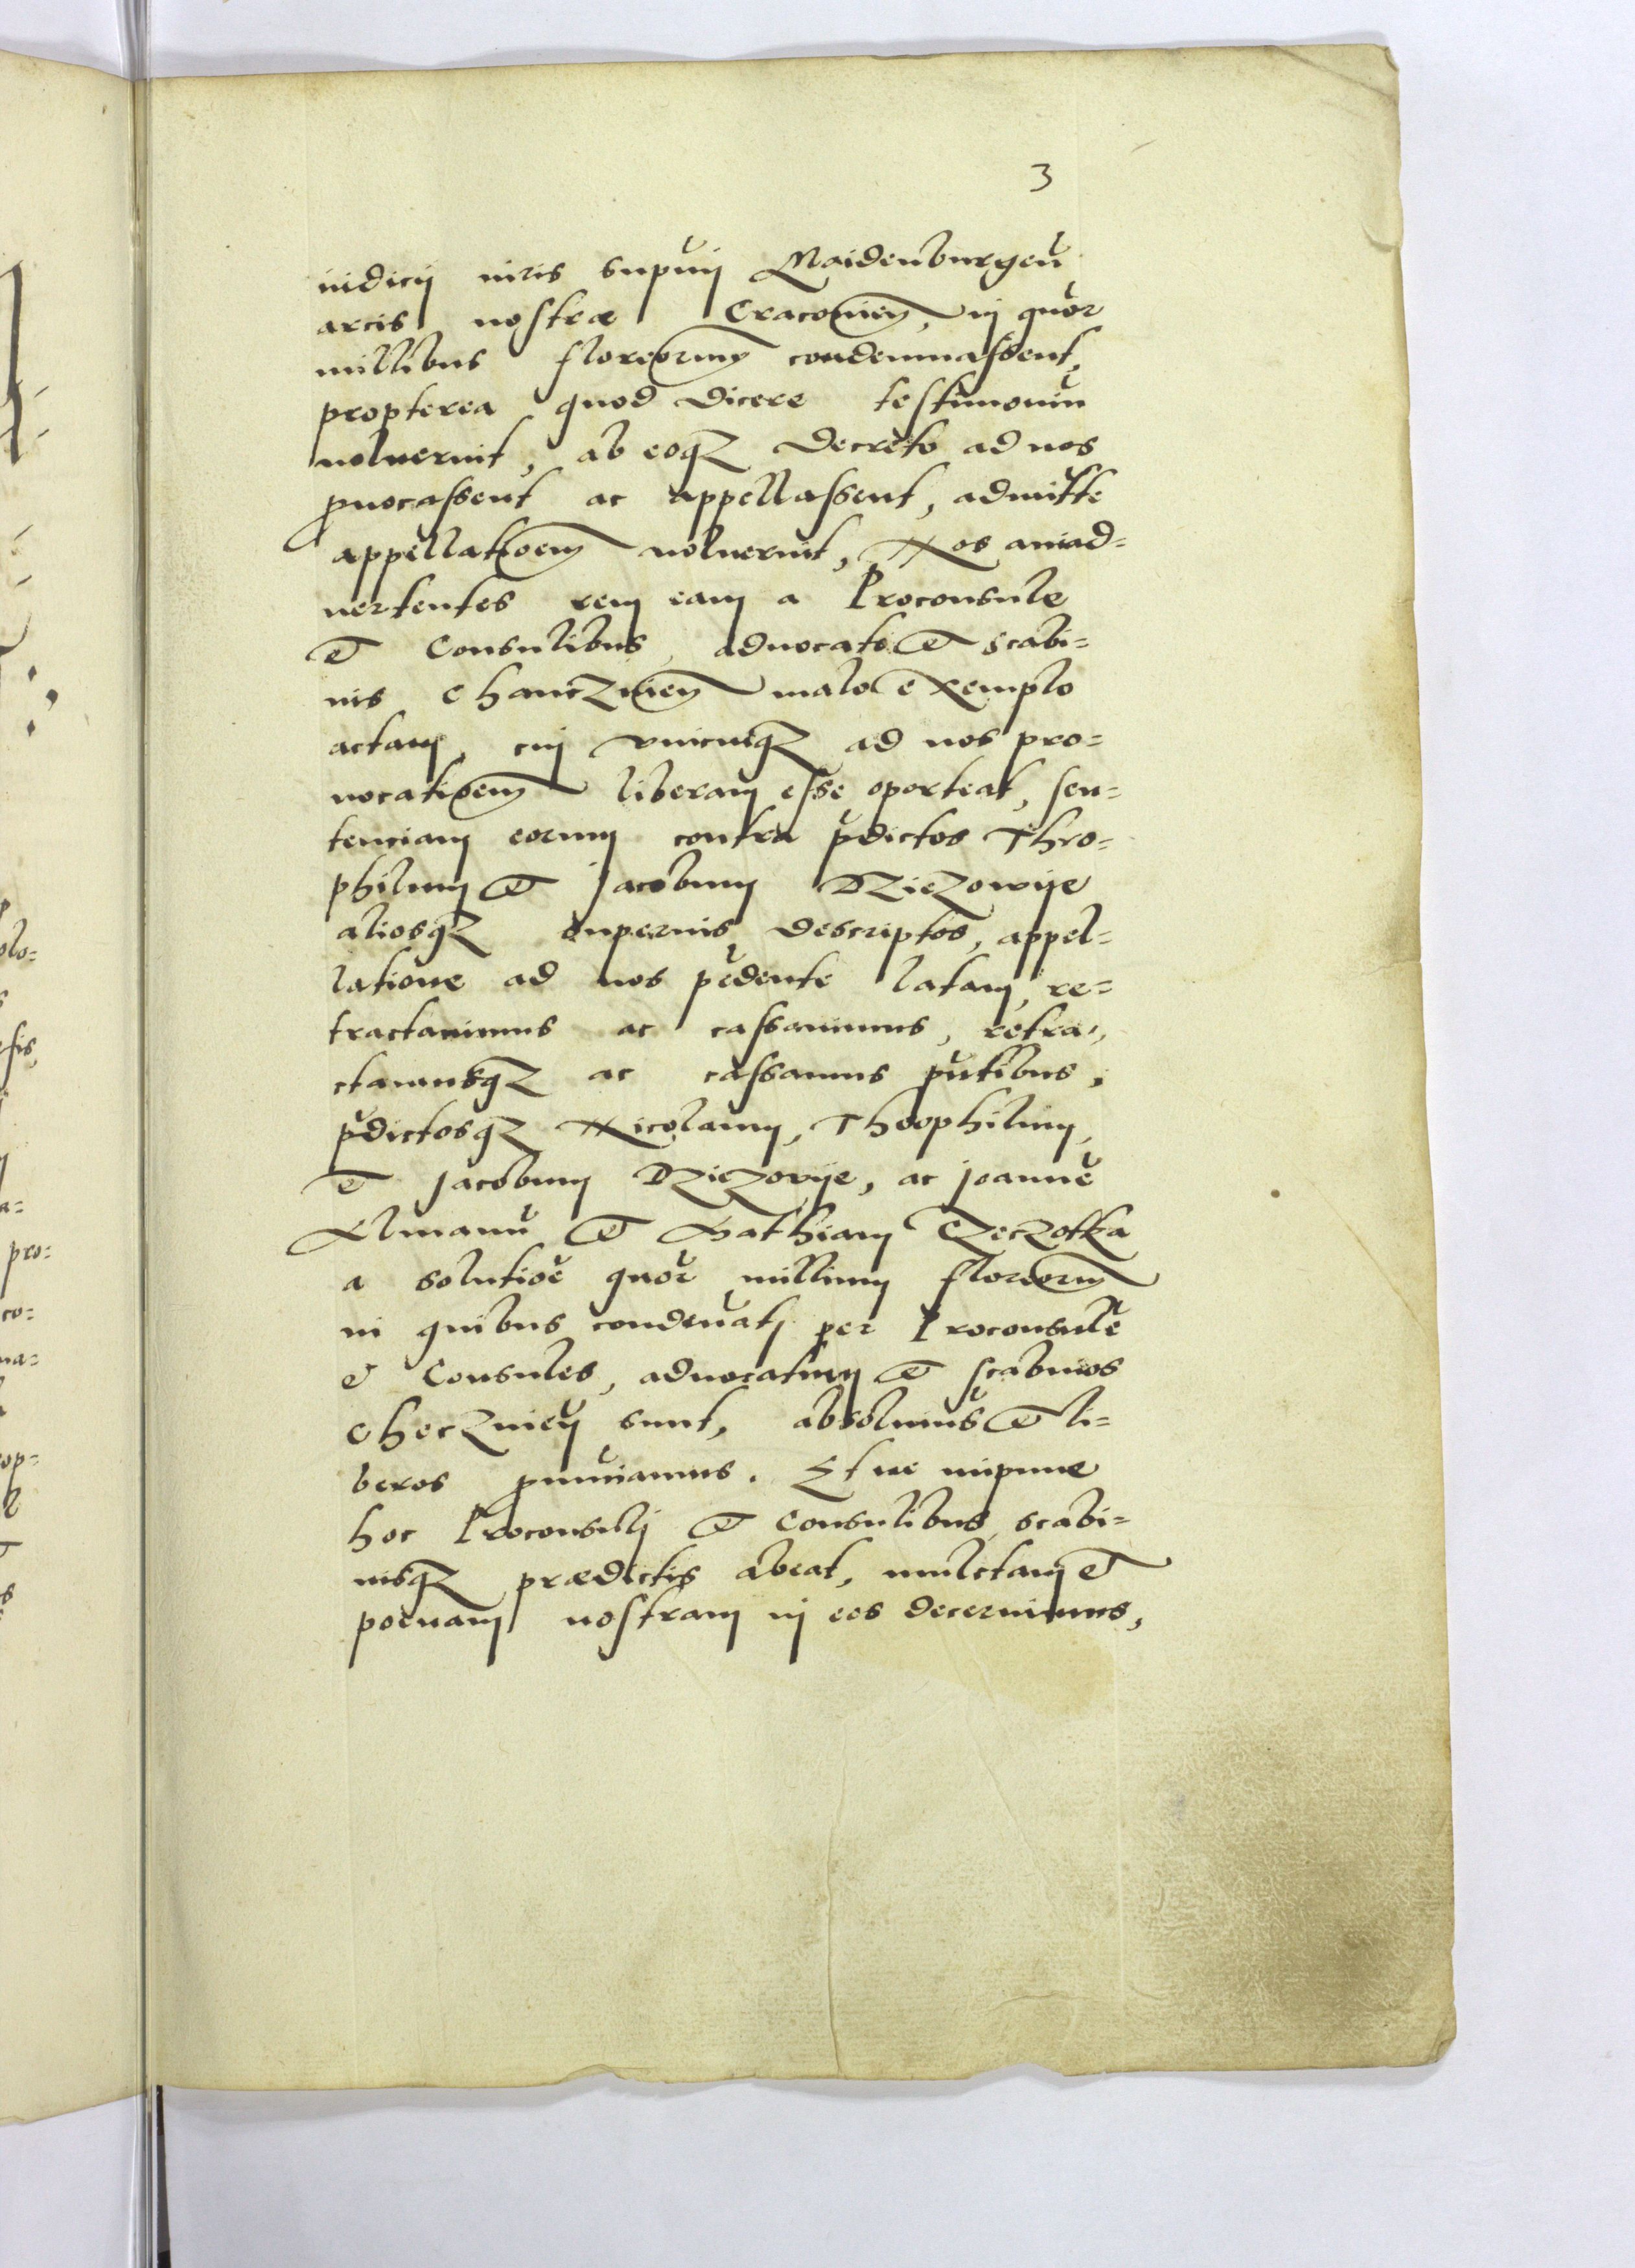 3
iudicij iuris supmj Maidenburgeñ
arcis nostræ Cracovień, in quor
millibus florenorum condemnassent,
propterea quod dicere testimoniũ
noluerint, ab eoqz decreto ad nos
prouocassent ac appellassent, admitte
appellationem noluerint, Nos aniad=
uertentes rem eam a Proconsule
et Consulibus, aduocato et scabi=
nis Chancznień malo exemplo
actam, cum vnicuiqz ad nos pro=
uocationem liberam esse oporteat, sen=
tenciam eorum contra p̃dictos Theo=
philum et Jacobum Dziezowije
aliosqz superius descriptos, appel=
latione ad nos pẽdente latam, re=
tractauimus ac cassauimus, retra=
ctamusqz ac cassamus p̃ntibus,
p̃dictosqz Nicolaum, Theophilum,
et Jacobum Dziezovije, ac Joannẽ
Elmanũ et Mathiam Czeczotka
a solutioẽ quor millium florenorum
in quibus condemnati per Proconsulẽ
et Consules, aduocatum et scabinos
Checznień sunt, absoluimus et li=
beros pronũciamus. Et ne impune
hoc Proconsuli et Consulibus, scabi=
nisqz prædictis abeat, mulctam et
poenam nostram in eos decernimus,
olo=
sis,
a=
pro:
co=
ma=
op=